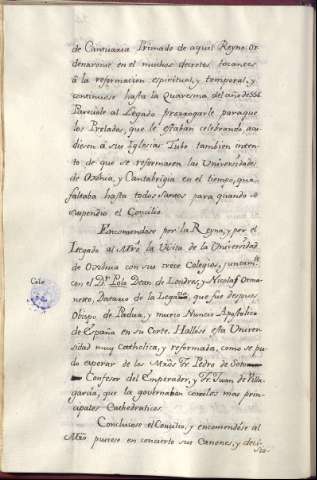 de Canturaria Primado de aquel Reyno. Or
denaronse en el muchos decretos tocantes
á la reformacion espiritual, y temporal, y
continuose hasta la Quaresma del año de 556.
Pareciole al Legado prorrogarle paraque
los Prelados, que le estaban celebrando, acu
diesen á sus Iglesias. Tubo tambien inten
to de que se reformasen las Universidades
de Oxonia, y Cantabrigia en el tiempo, que
faltaba hasta todos Santos para quando
suspendio el Concilio.
Encomendose por la Reyna, y por el
Legado al Mro. la Visita de la Universidad
de Oxonia con sus trece Colegios, juntamte.
con el Dr. Dean de Londres, y Nicolas Orma
neto, Datario de la Legacia, que fue despues
Obispo de Padua, y murio Nuncio Apostolico
de España en su Corte. Hallose esta Univer
sidad muy catholica, y reformada, como se pu
do esperar de los Mros. Fr. Pedro de Soto
Confesor del Emperador, y Fr. Juan de Villa
garcia, que la governaban como los mas prin
cipales Cathedraticos.
Concluiose el Concilio, y encomendose al
Mro. pusiese en concierto sus Canones, y deci
sio-